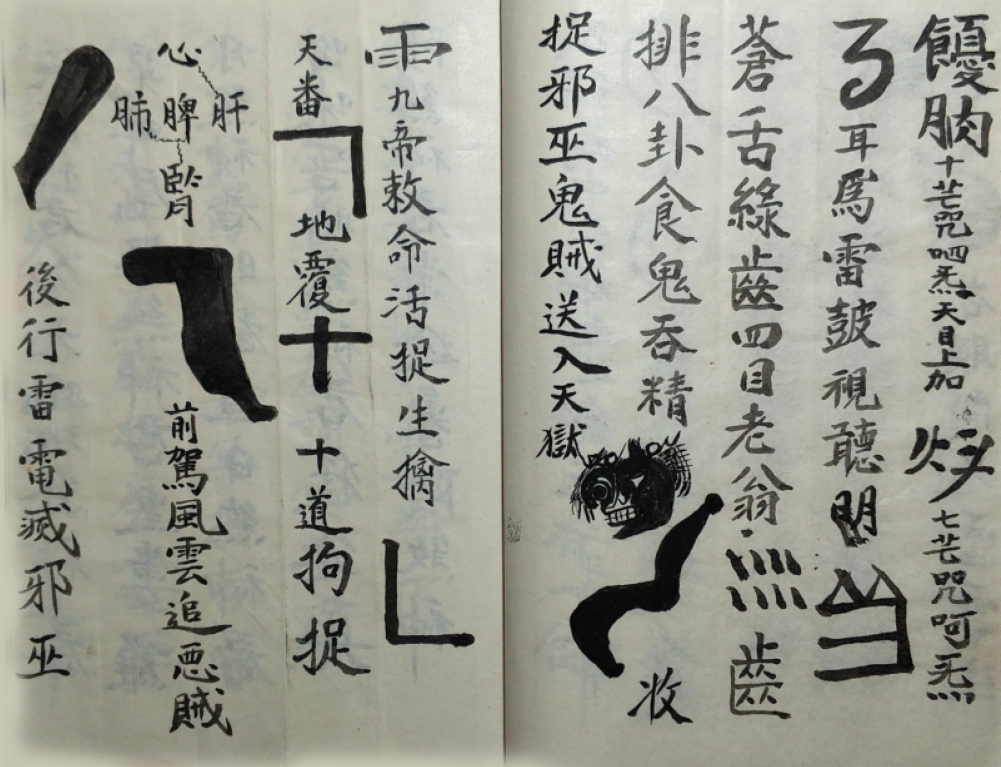 十芒咒呬炁天目上加 七芒咒呵炁
耳爲雷鼓視聽明
蒼舌綠齒四目老翁 齒
排八卦食鬼吞精 收
捉邪巫鬼賊送入天獄
雨九帝敕命活捉生擒
天番 地覆 十道拘捉
心 肝 脾 肺 腎 前駕風雲追惡賊
後行雷電滅邪巫